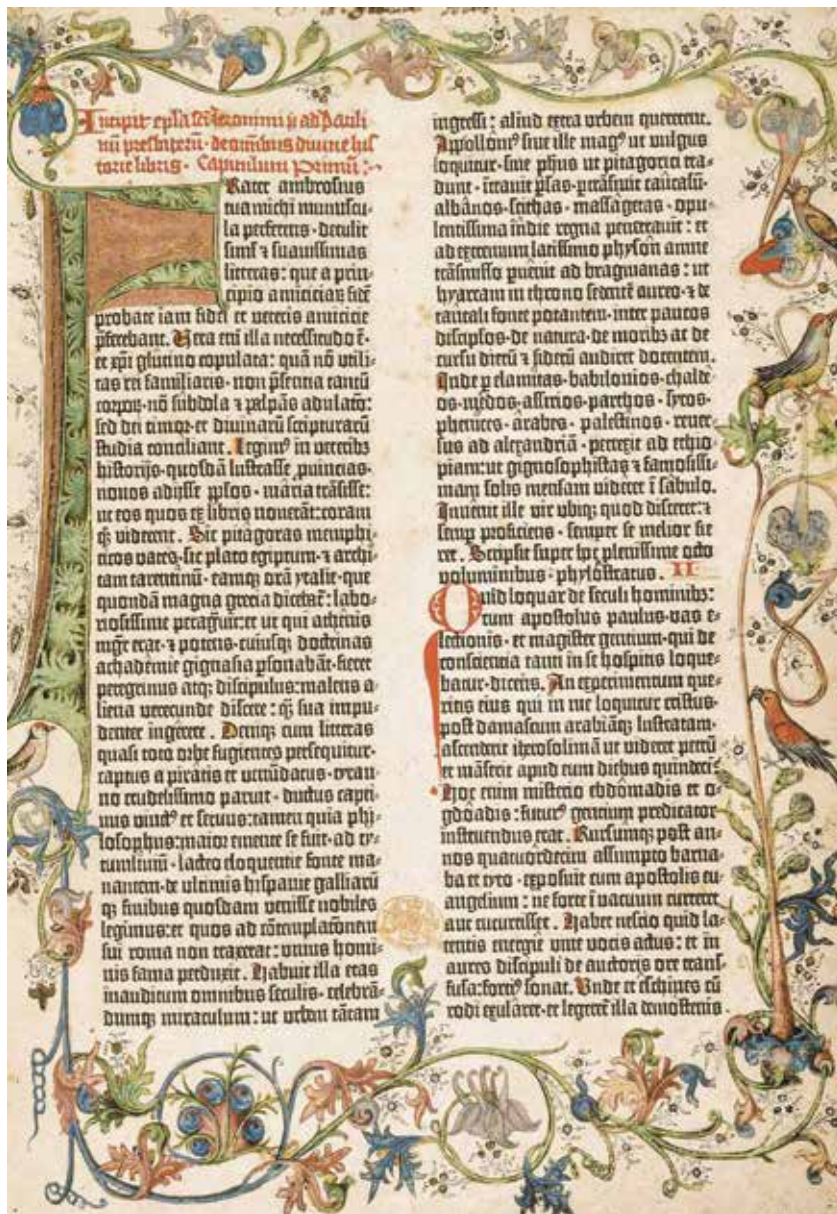 Incipit epl'a sancti iheronimi p̄ ad pauli
nū presbiterū · de omnibus diuine his
torie libris · Capitulum Primū :·
FRater ambrosius
tua michi munuscu-
la perferens · detulit
simul ⁊ suauissimas
litteras: que a prin-
cipio amiciciaꝝ fidē
probate iam fidei et veteris amicicie
p̄ferebant. Vera eni illa necessitudo ē ·
et xp̄i glutino copulata: quā nō vtili-
tas rei familiaris · non p̄sentia tantū
corporꝫ · nō subdola ⁊ palpās adulatio:
sed dei timor · et diuinarū scripturarū
studia conciliant. Legimꝰ in veteribꝫ
historijs · quosdā lustrasse ꝓuincias ·
nouos adijsse pp̄los · maria trāsisse:
ut eos quos ex libris nouerāt: coram
qꝫ viderent. Sic pitagoras memphi-
ticos vates · sic plato egiptum · ⁊ archi-
tam tarentinū · eamqꝫ orā ytalie · que
quondā magna grecia dicebat᷑: labo-
riosissime peragᷓuit: et ut qui athenis
mgr̄ erat · ⁊ potens · cuiusqꝫ doctrinas
achademie gignasia ꝑsonabāt · fieret
peregrinus atqꝫ discipulus: malens a-
liena verecunde discere: qꝫ sua impu-
denter ingerere. Deniqꝫ cum litteras
quasi toto orbe fugientes persequitur ·
captus a piratis et venūdatus · tyran-
no crudelissimo paruit · ductus capti-
uus vinctꝰ et seruus: tamen quia phi-
losophus: maior emente se fuit · ad ty-
tumliuiū · lacteo eloquentie fonte ma-
nantem · de vltimis hispanie galliarū
qꝫ finibus quosdam venisse nobiles
legimus: et quos ad cōtemplatōnem
sui roma non traxerat: vnius homi-
nis fama perduxit. Habuit illa etas
inauditum omnibus seculis · celebrā-
dumqꝫ miraculum: ut vrbem tātam
ingressi: aliud extra vrbem quererent.
Appollōniꝰ siue ille magꝰ ut vulgus
loquitur · siue ph̄us ut pitagorici tra-
dunt · ītrauit p̄sas · ꝑtrāsiuit caucasū ·
albānos · scithas · massagetas · opu-
lentissima indie regna penetrauit: et
ad extremum latissimo physōn amne
trāsmisso ꝑuenit ad bragmanas: ut
hyarcam in throno sedentē aureo · ⁊ de
tantali fonte potantem · inter paucos
discip̄los · de natura · de moribꝫ ac de
cursu dierū ⁊ siderū audiret docentem.
Inde ꝑ elamitas · babilonios · chalde-
os · medos · assirios · parthos · syros ·
phenices · arabes · palestinos · reuer-
sus ad alexandriā · perrexit ad ethio-
piam: ut gignosophistas ⁊ famosissi-
mam solis mensam videret ī sabulo.
Inuenit ille vir vbiqꝫ quod disceret: ⁊
semꝑ proficiens · semper se melior fie-
ret. Scripsit super hoc plenissime octo
voluminibus · phylostratus. II
Quid loquar de seculi hominibꝫ:
cum apostolus paulus · vas e-
lectionis · et magister gentium · qui de
consciencia tanti in se hospitis loque-
batur · dicens. An experimentum que-
ritis eius qui in me loquitur cristus ·
post damascum arabiāqꝫ lustratam ·
ascenderit iherosolimā ut videret petrū
et māserit apud eum diebus quindeci-
Hoc enim misterio ebdōmadis et o-
gdōadis: futurꝰ gencium predicator
instruendus erat. Rursumqꝫ post an-
nos quatuordecim assumpto barna-
ba et tyto · exposuit cum apostolis eu-
angelium: ne forte ī vacuum curreret
aut cucurrisset. Habet nescio quid la-
tentis energie viue vocis actus: et in
aures discipuli de auctoris ore trans-
fusa: fortiꝰ sonat. Vnde et eschines cū
rodi exularet · et legeret᷑ illa demostenis